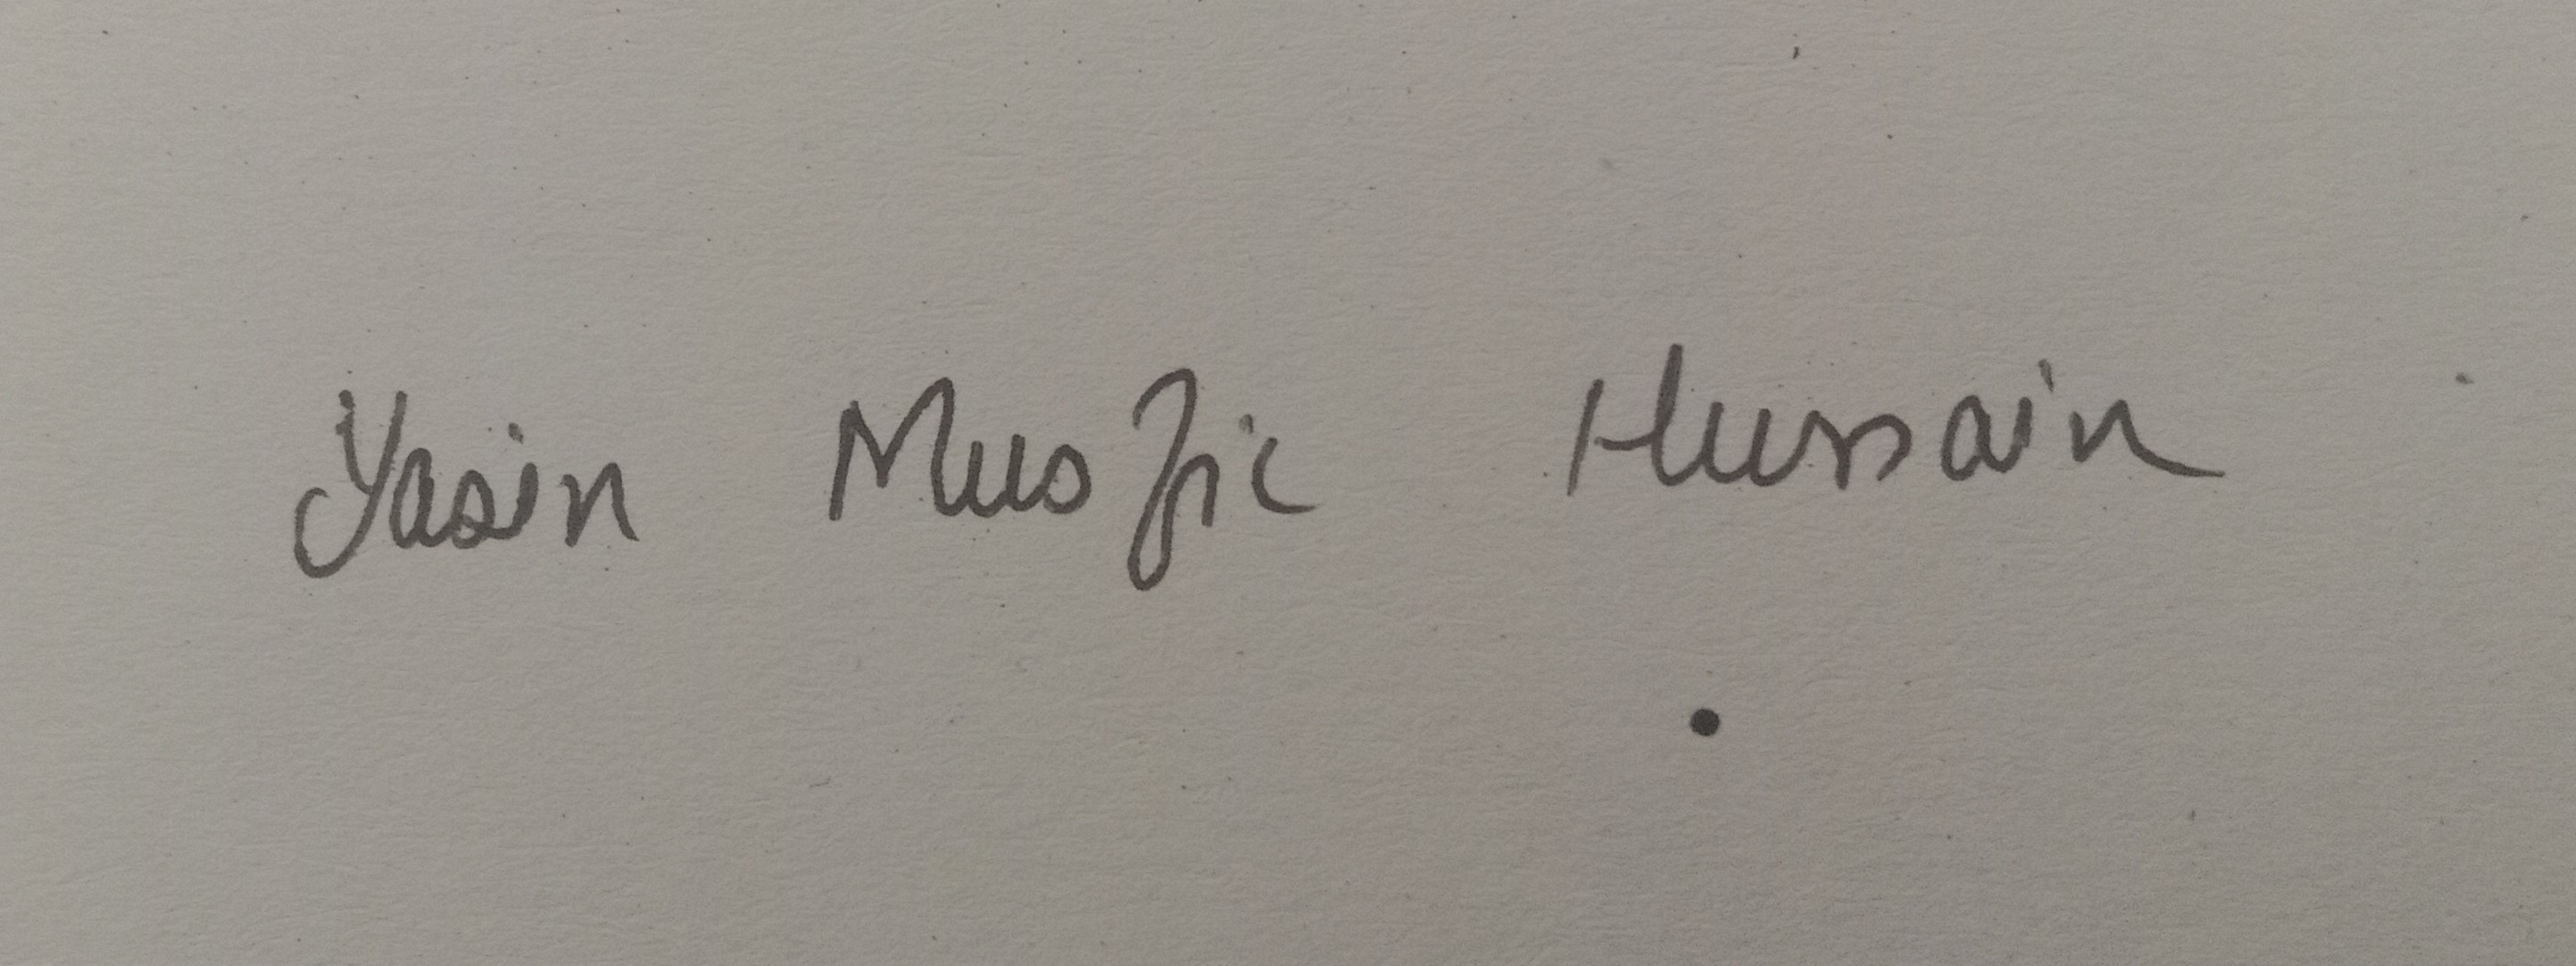 Yasin Musfic Hussain